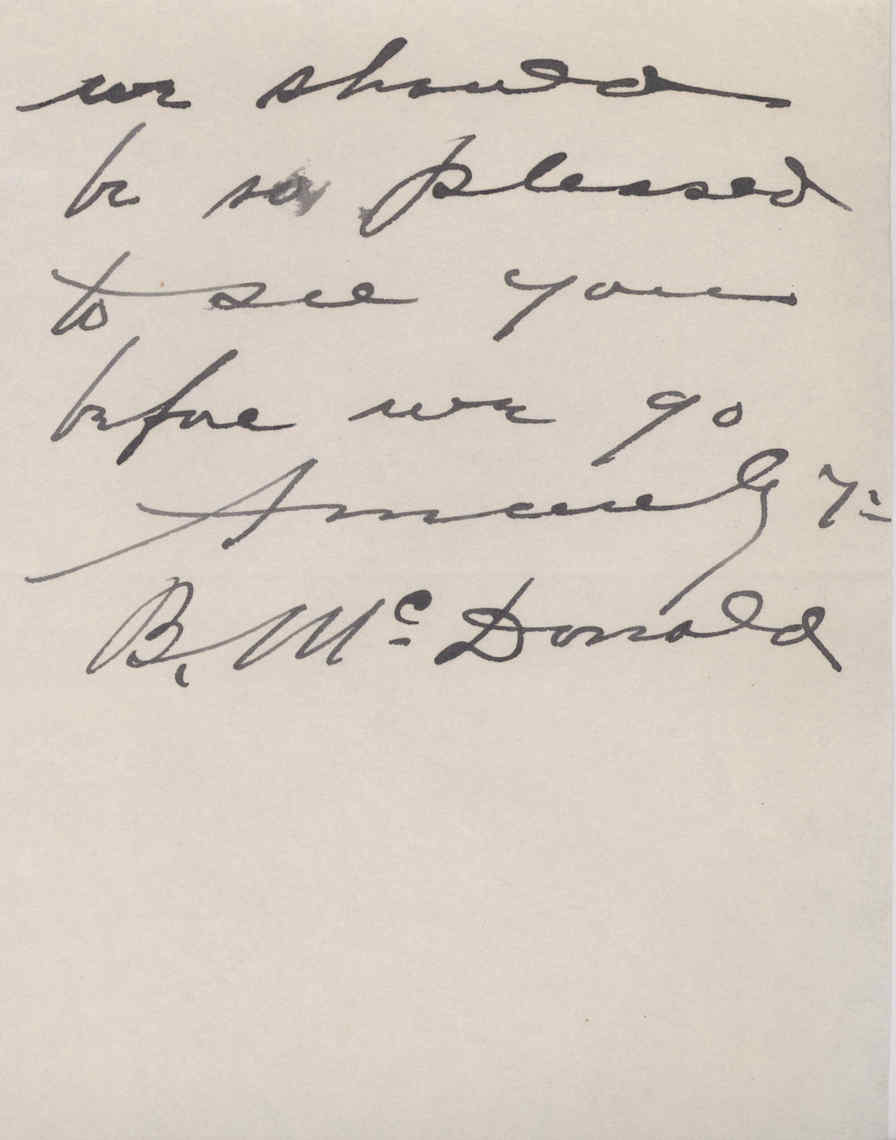 we should
be so pleased
to see you
before we go
Sincerely Y=
B. Mc Donald